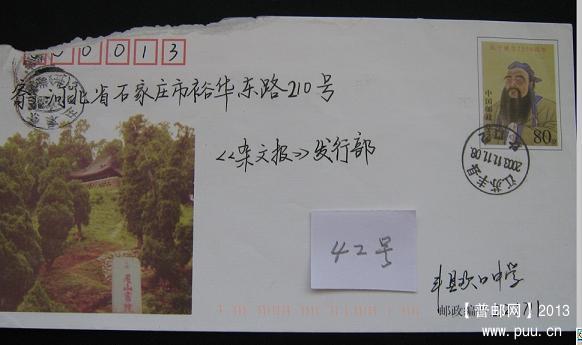 0013
河北省石家庄市裕华东路210号
《杂文报》发行部
中国邮政
80分
2003.11.08
江苏丰县
42号
尼山书院
丰县欢口中学
邮政编
【普邮网】2013
www.puu.cn